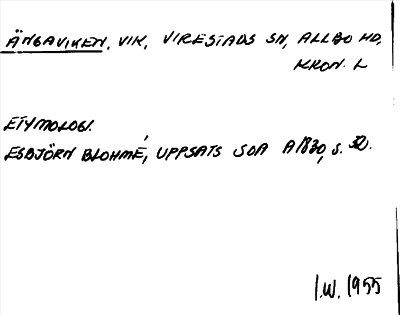 ÄNGAVIKEN. VIK, VIRESTADS SN, ALLBO HD,
KRON. L
ETYMOLOGI.
ESBJÖRN BLOHMÉ, UPPSATS SOA A1830, S. 32.
I.W. 1955